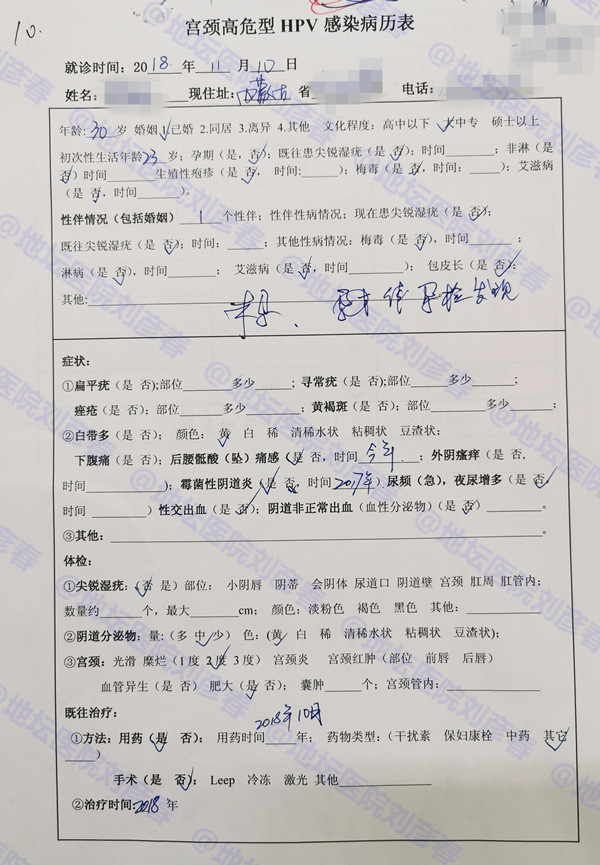 10.
宫颈高危型 HPV 感染病历表
就诊时间：2018 年 11 月 10 日
姓名： 现住址：内蒙古 省 电话：
年龄：30 岁 婚姻 1.已婚 2.同居 3.离异 4.其他 文化程度：高中以下 大中专 硕士以上
初次性生活年龄23岁；孕期（是，否）；既往患尖锐湿疣（是 否）；时间________；非淋（是
否）时间________生殖性疱疹（是 否， 时间：______）；梅毒（是 否，时间：_____）；艾滋病
（是 否，时间_______）。
性伴情况（包括婚姻） 1 个性伴；性伴性病情况：现在患尖锐湿疣（是 否）；
既往尖锐湿疣（是 否）；时间：_____；其他性病情况：梅毒（是 否），时间_______；
淋病（是 否），时间________； 艾滋病（是 否，时间_________）； 包皮长（是 否）；
其他: 未孕、 孕检发现
症状：
①扁平疣（是 否）;部位________多少______；寻常疣（是 否）;部位______多少_____；
痤疮（是 否）；部位_______多少________；黄褐斑（是 否）；部位________多少_______；
②白带多（是 否）； 颜色： 黄 白 稀 清稀水状 粘稠状 豆渣状；
下腹痛（是 否）；后腰骶酸（坠）痛感（是 否，时间 今年 ；外阴瘙痒（是 否，
时间___________）；霉菌性阴道炎（是 否，时间2017年）尿频（急），夜尿增多（是 否，
时间 ________）性交出血（是 否）；阴道非正常出血（血性分泌物）（是 否）________。
③其他：________________。
体检：
①尖锐湿疣：（否 是）部位： 小阴唇 阴蒂 会阴体 尿道口 阴道壁 宫颈 肛周 肛管内；
数量约______个，最大_______cm； 颜色：淡粉色 褐色 黑色 其他：________
②阴道分泌物：量：（多 中 少） 色：（黄 白 稀 清稀水状 粘稠状 豆渣状）；
③宫颈：光滑 糜烂（1度 2度 3度） 宫颈炎 宫颈红肿（部位 前唇 后唇）
血管异生（是 否） 肥大（是 否）； 囊肿_____个；宫颈管内：________
既往治疗：
2018年10月
①方法：用药（是 否） 用药时间____年； 药物类型：（干扰素 保妇康栓 中药 其它
____）
手术（是 否）： Leep 冷冻 激光 其他____________
②治疗时间:2018 年
@地坛医院刘彦春